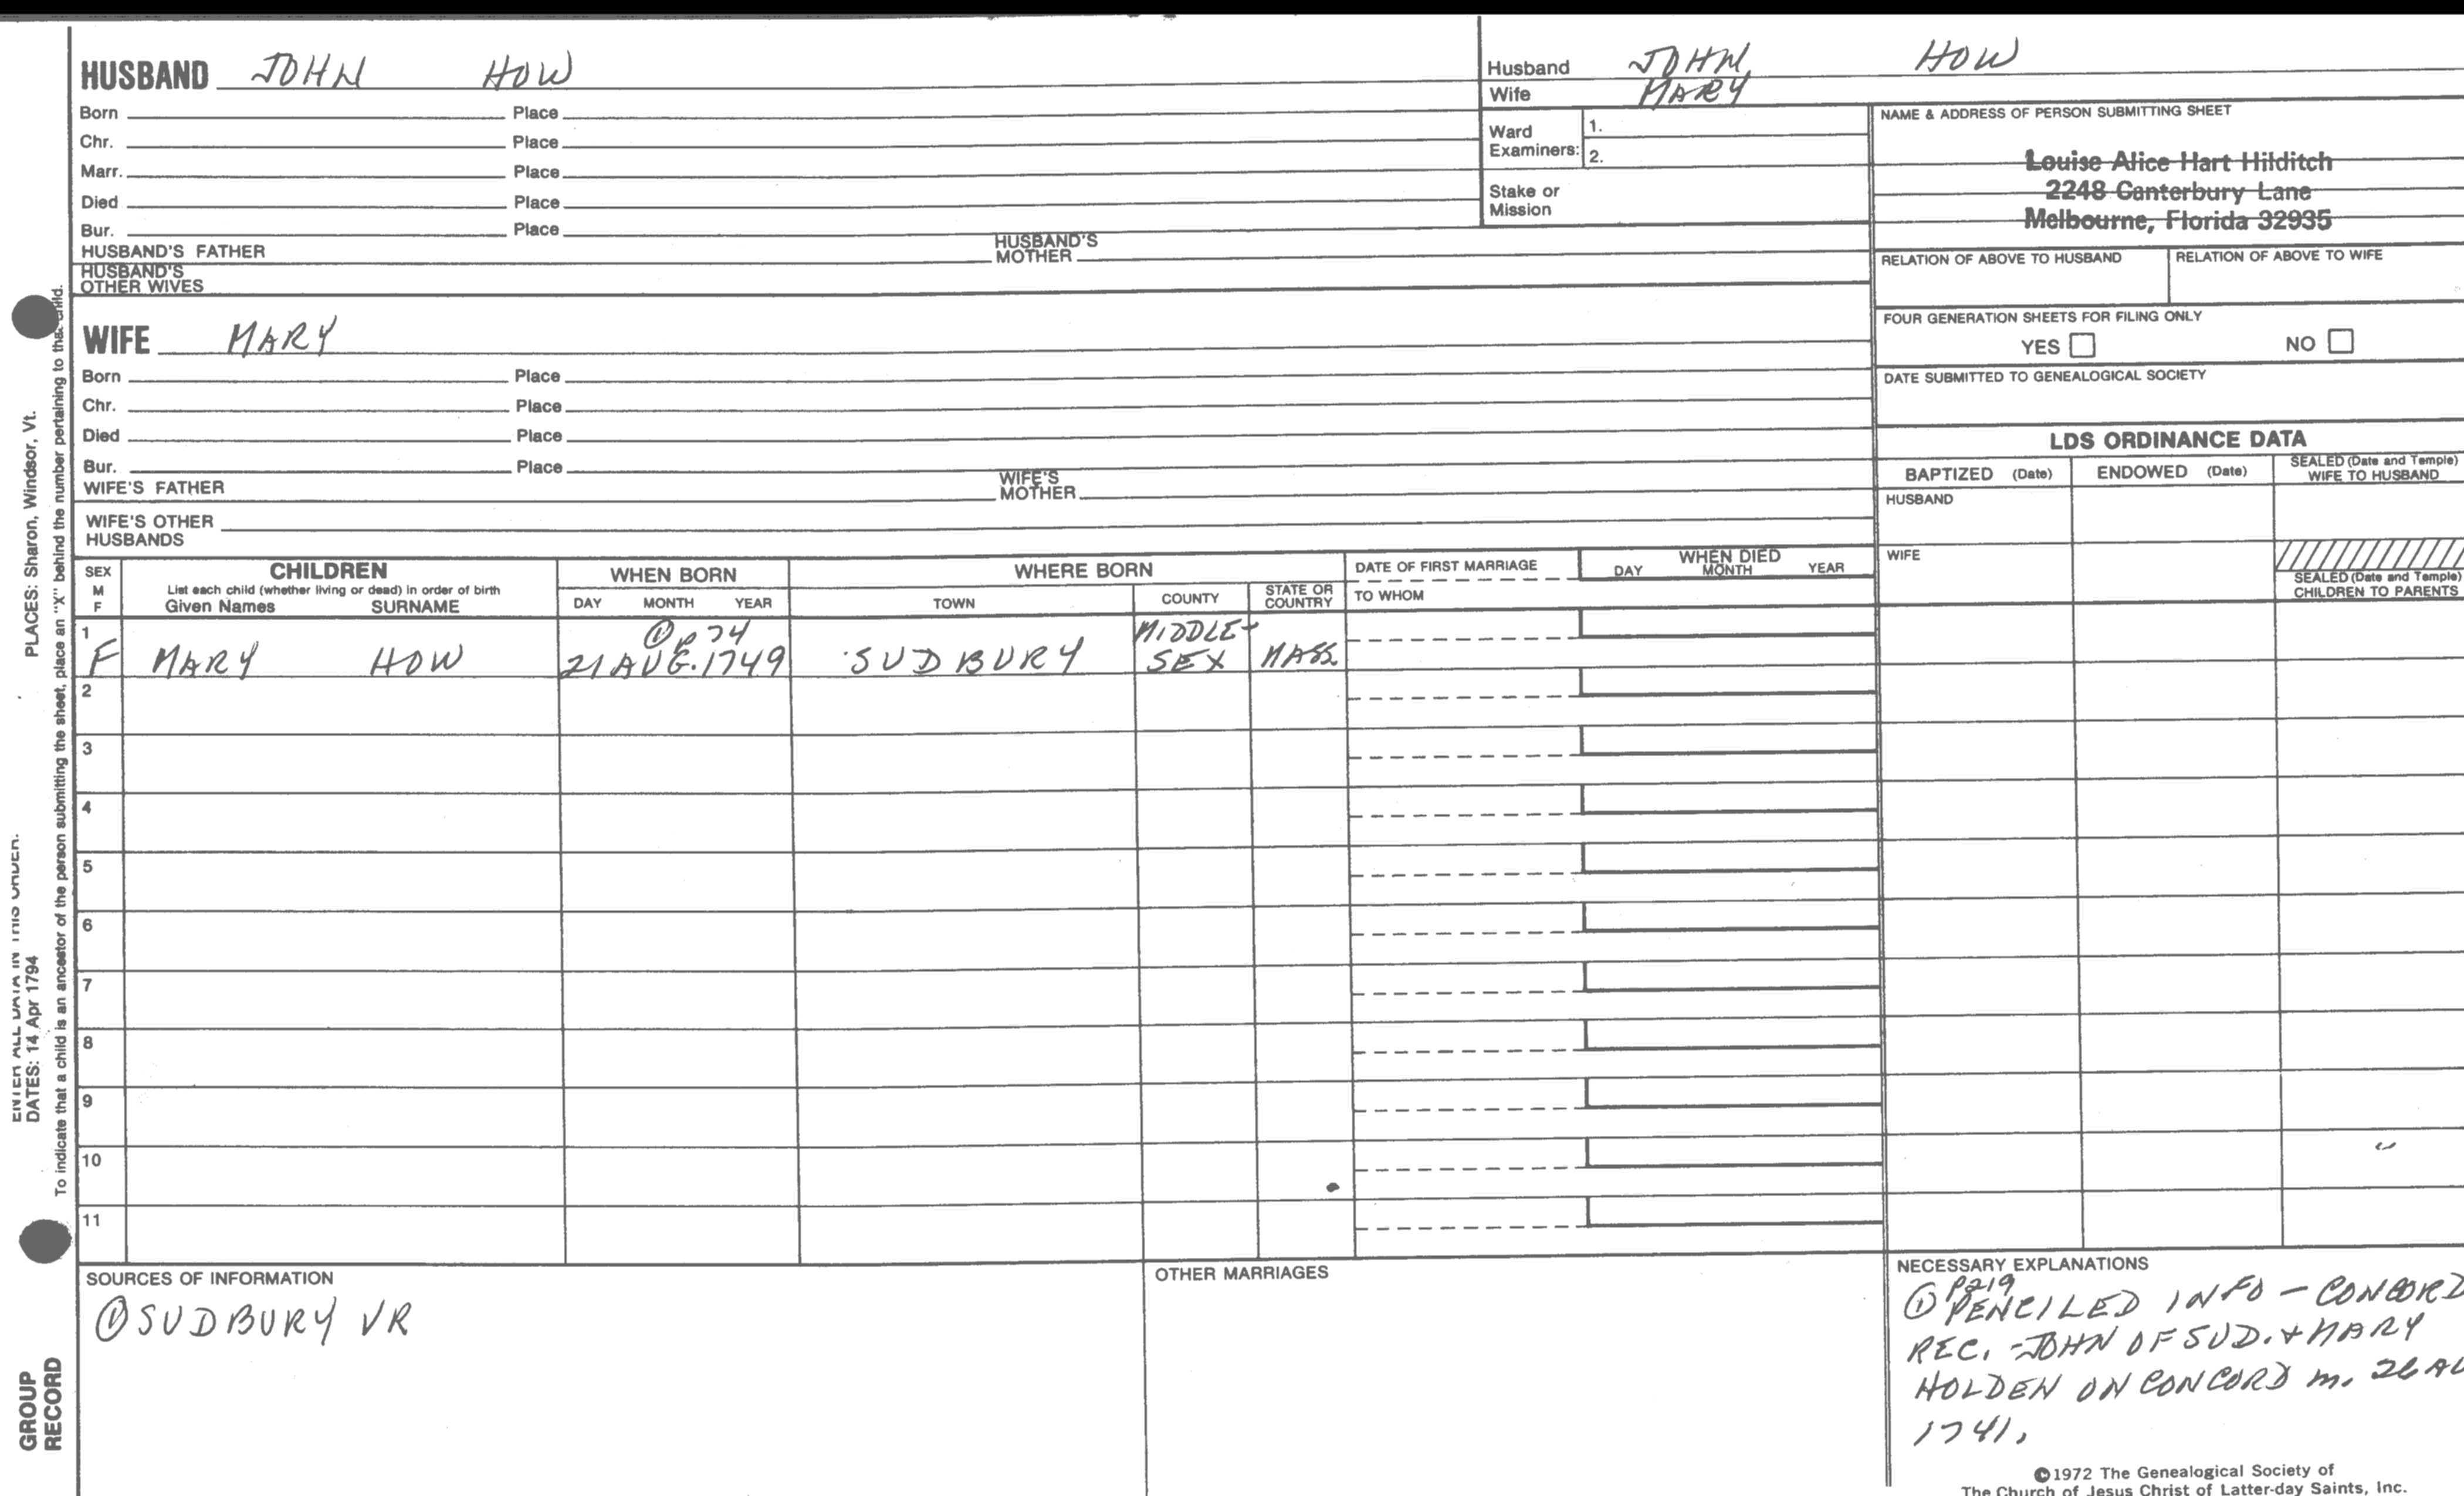 HUSBAND JOHN HOW
Born Place
Chr. Place
Marr. Place
Died Place
Bur. Place
HUSBAND'S FATHER HUSBAND'S MOTHER
HUSBAND'S OTHER WIVES
WIFE MARY
Born Place
Chr. Place
Died Place
Bur. Place
WIFE'S FATHER WIFE'S MOTHER
WIFE'S OTHER HUSBANDS
Husband JOHN HOW
Wife MARY
Ward Examiners: 1.
2.
Stake or Mission
NAME & ADDRESS OF PERSON SUBMITTING SHEET
Louise Alice Hart Hilditch
2248 Canterbury Lane
Melbourne, Florida 32935
RELATION OF ABOVE TO HUSBAND RELATION OF ABOVE TO WIFE
FOUR GENERATION SHEETS FOR FILING ONLY
YES NO
DATE SUBMITTED TO GENEALOGICAL SOCIETY
LDS ORDINANCE DATA
BAPTIZED (Date) ENDOWED (Date) SEALED (Date and Temple) WIFE TO HUSBAND
HUSBAND
WIFE
SEALED (Date and Temple) CHILDREN TO PARENTS
SEX M F
CHILDREN
List each child (whether living or dead) in order of birth
Given Names SURNAME
WHEN BORN
DAY MONTH YEAR
WHERE BORN
TOWN COUNTY STATE OR COUNTRY
DATE OF FIRST MARRIAGE
TO WHOM
WHEN DIED
DAY MONTH YEAR
1 ① P 74 MIDDLE-
F MARY HOW 21 AUG. 1749 SUDBURY SEX MASS
2
3
4
5
6
7
8
9
10
11
SOURCES OF INFORMATION
① SUDBURY VR
OTHER MARRIAGES
NECESSARY EXPLANATIONS
① P219
PENCILED INFO - CONCORD
REC. - JOHN OF SUD. + MARY
HOLDEN ON CONCORD m. 26 AU
1741.
©1972 The Genealogical Society of
The Church of Jesus Christ of Latter-day Saints, Inc.
PLACES: Sharon, Windsor, Vt.
ENTER ALL DATA IN THIS ORDER:
DATES: 14 Apr 1794
To indicate that a child is an ancestor of the person submitting the sheet, place an "X" behind the number pertaining to that child.
GROUP
RECORD